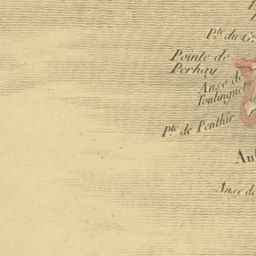 Pte. du G
Pointe de
Perhay
Anse de
Toulinguet
pte. de Penthir
Anse de